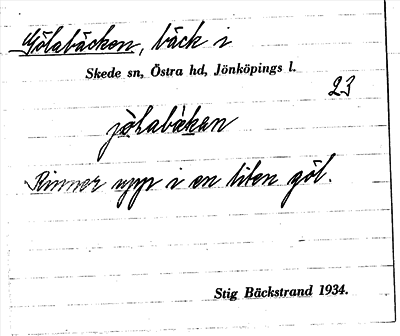 Gölabäcken, bäck i
Skede sn, Östra hd, Jönköpings l.
23
jölabäkan
Rinner upp i en liten göl.
Stig Bäckstrand 1934.